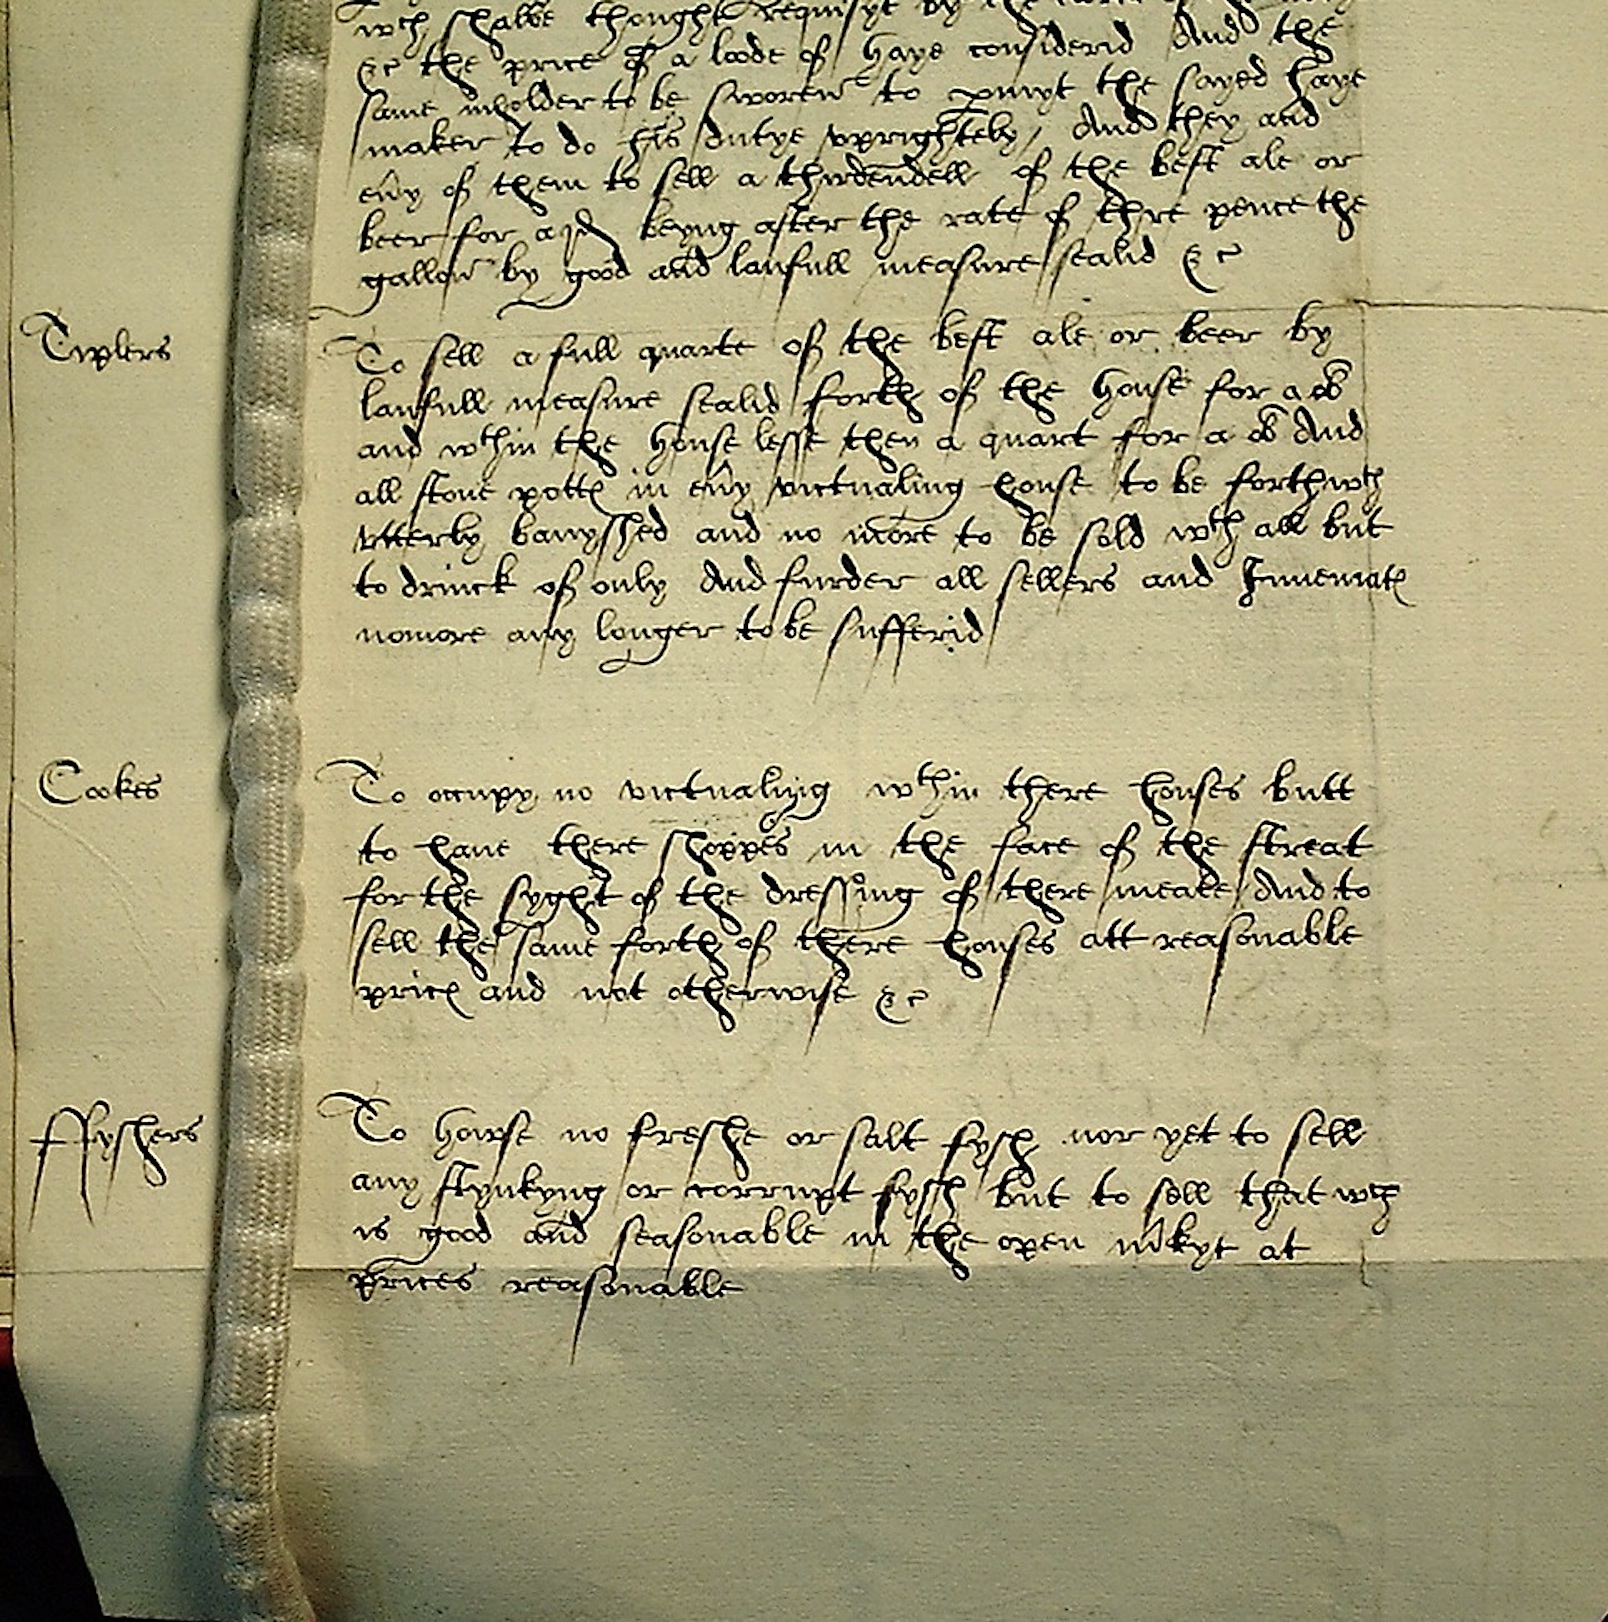 wch shalbe thought requisyt by the
&c the price of a loode of haye considerid And the
same inholder to be sworen to pmyt the sayed haye
maker to do his dutye vprightely / And they and
eűy of them to sell a thirdendell of the best ale or
beer for a jd beyng after the rate of thre pence the
gallon by good and laufull measure sealid &c
Tiplers
To sell a full quarte of the best ale or beer by
laufull measure sealid forth of the house for a ob
and wthin the house lesse then a quart for a ob And
all stone pott in eűy victualing house to be forthwth
vtterly banysshed and no more to be sold wth all but
to drinck of only And furder all sellers and
nomore any longer to be sufferid
Cookes
To occupy no victualing wthin there houses butt
to haue there shoppes in the face of the streat
for the syght of the dressing of there meate And to
sell the same forth of there houses att reasonable
pric and not otherwise &c
ffyshers
To howse no freshe or salt fysh nor yet to sell
any stynkyng or corrupt fyssh but to sell that wch
is good and seasonable in the open mkyt at
prices reasonable